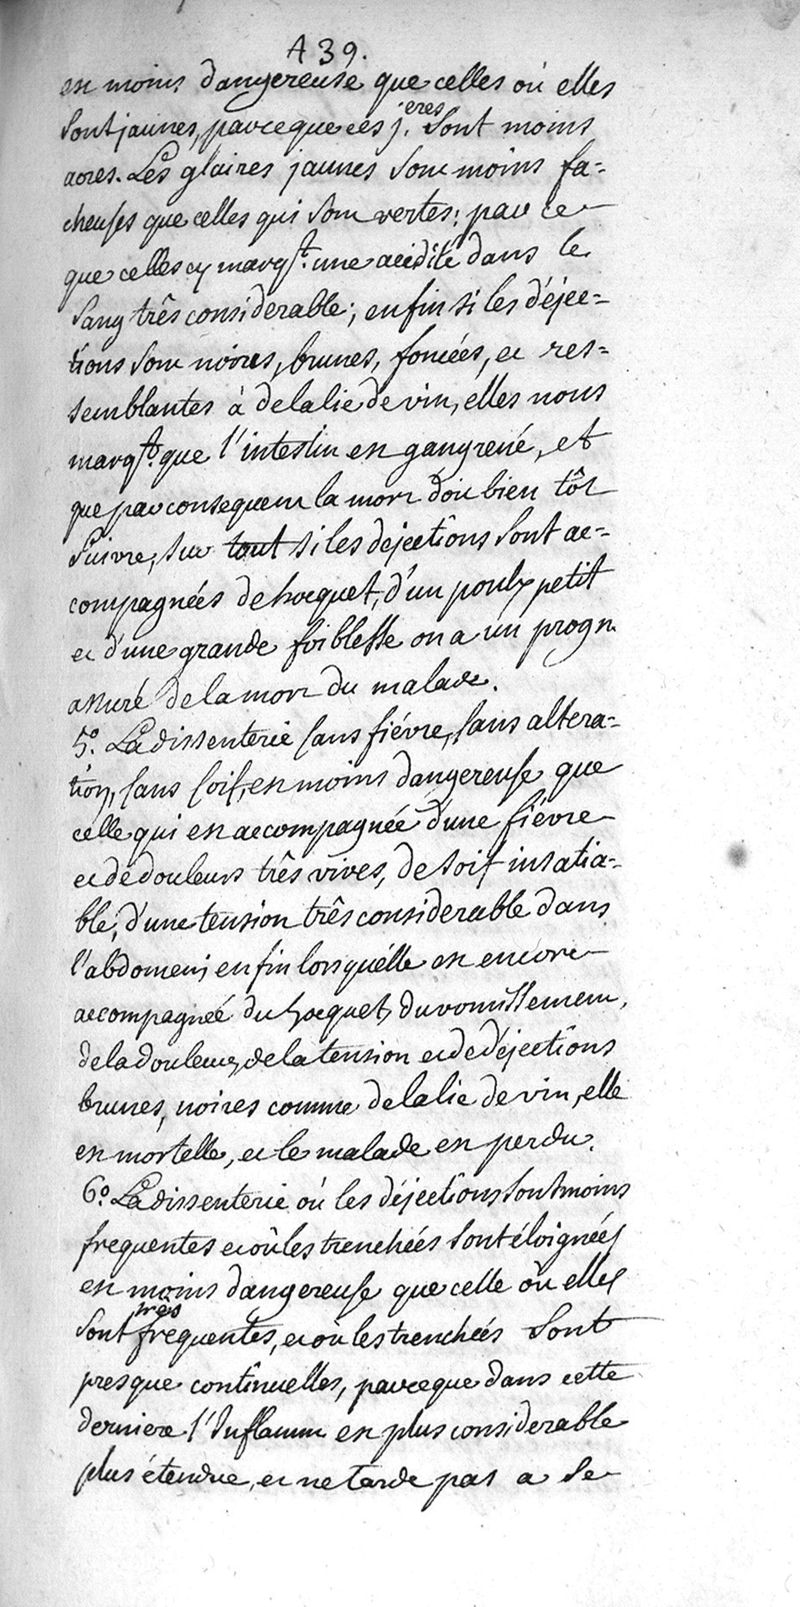 A 39.
est moins dangereuse que celles où elles
sont jaunes, parceque ces j.eres sont moins
acres. Les glaires jaunes sont moins fa=
cheuses que celles qui sont vertes; par ce
que celles cy marqt. une acidité dans le
sang três considerable; enfin si les déjec=
tions sont noires, brunes, foncées, et res=
semblantes à de la lie de vin, elles nous
marqt. que l'intestin est gangrené, et
que par consequent la mort doit bien tôt
suivre, sur tout si les dejections sont ac=
compagnées de hocquet, d'un poulx petit
et d'une grande foiblesse on a un progn.
assuré de la mort du malade.
5°. La dissenterie sans fiévre, sans altera=
tion, sans soif, est moins dangereuse que
celle qui est accompagnée d'une fiévre
et de douleurs três vives, de soif insatia=
ble, d'une tension três considerable dans
l'abdomen; enfin lorsquélle est encore
accompagnée du hocquet, du vomissement,
de la douleur, de la tension et de déjections
brunes, noires comme de la lie de vin, elle
est mortelle, et le malade est perdu.
6°. La dissenterie où les déjections sont moins
frequentes et où les trenchées sont éloignées
est moins dangereuse que celle où elles
sont très frequentes, et où les trenchées sont
presque continuelles, parceque dans cette
derniere l'Inflamm est plus considerable
plus étendue, et ne tarde pas a se